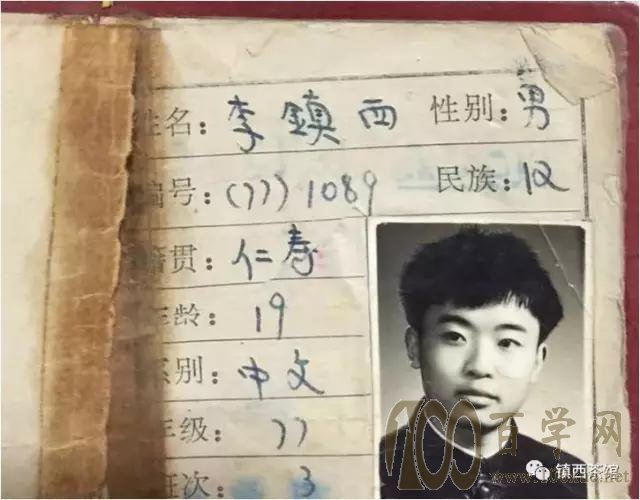 姓名：李鎮西 性别：男
编号：(77)1089 民族：汉
籍贯：仁寿
年龄：19
系别：中文
年级：77
班次：3
100百学网
镇西茶馆